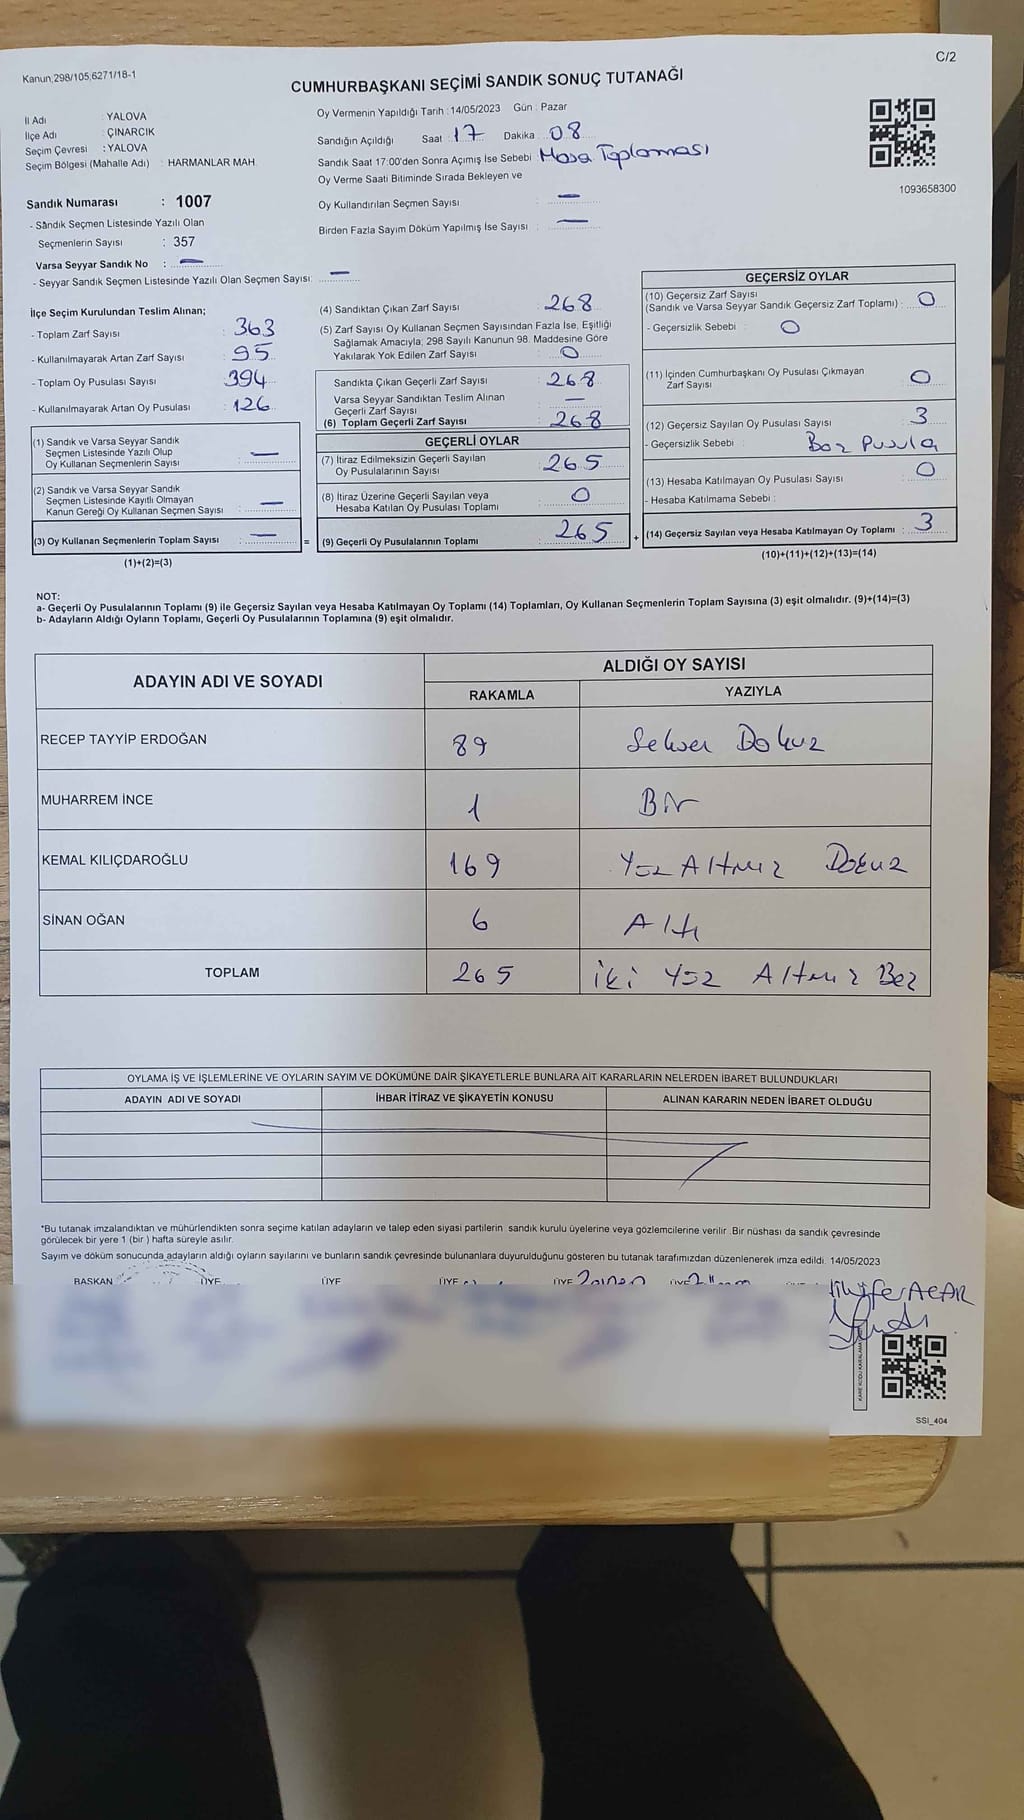 Kanun,298/105,6271/18-1
C/2
CUMHURBAŞKANI SEÇİMİ SANDIK SONUÇ TUTANAĞI
İl Adı : YALOVA
İlçe Adı : ÇINARCIK
Seçim Çevresi : YALOVA
Seçim Bölgesi (Mahalle Adı) : HARMANLAR MAH.
Oy Vermenin Yapıldığı Tarih :14/05/2023 Gün : Pazar
Sandığın Açıldığı Saat 17 Dakika 08
Sandık Saat 17:00'den Sonra Açımış İse Sebebi Masa Toplaması
Oy Verme Saati Bitiminde Sırada Bekleyen ve
Oy Kullandırılan Seçmen Sayısı : —
Birden Fazla Sayım Döküm Yapılmış İse Sayısı : —
1093658300
Sandık Numarası : 1007
- Sandık Seçmen Listesinde Yazılı Olan
Seçmenlerin Sayısı : 357
Varsa Seyyar Sandık No : —
- Seyyar Sandık Seçmen Listesinde Yazılı Olan Seçmen Sayısı: —
İlçe Seçim Kurulundan Teslim Alınan;
- Toplam Zarf Sayısı : 363
- Kullanılmayarak Artan Zarf Sayısı : 95
- Toplam Oy Pusulası Sayısı : 394
- Kullanılmayarak Artan Oy Pusulası : 126
(1) Sandık ve Varsa Seyyar Sandık
Seçmen Listesinde Yazılı Olup
Oy Kullanan Seçmenlerin Sayısı : —
(2) Sandık ve Varsa Seyyar Sandık
Seçmen Listesinde Kayıtlı Olmayan
Kanun Gereği Oy Kullanan Seçmen Sayısı : —
(3) Oy Kullanan Seçmenlerin Toplam Sayısı : —
(1)+(2)=(3)
=
(4) Sandıktan Çıkan Zarf Sayısı : 268
(5) Zarf Sayısı Oy Kullanan Seçmen Sayısından Fazla İse, Eşitliği
Sağlamak Amacıyla, 298 Sayılı Kanunun 98. Maddesine Göre
Yakılarak Yok Edilen Zarf Sayısı : 0
Sandıkta Çıkan Geçerli Zarf Sayısı : 268
Varsa Seyyar Sandıktan Teslim Alınan
Geçerli Zarf Sayısı : —
(6) Toplam Geçerli Zarf Sayısı : 268
GEÇERLİ OYLAR
(7) İtiraz Edilmeksizin Geçerli Sayılan
Oy Pusulalarının Sayısı : 265
(8) İtiraz Üzerine Geçerli Sayılan veya
Hesaba Katılan Oy Pusulası Toplamı : 0
(9) Geçerli Oy Pusulalarının Toplamı : 265
+
GEÇERSİZ OYLAR
(10) Geçersiz Zarf Sayısı
(Sandık ve Varsa Seyyar Sandık Geçersiz Zarf Toplamı) : 0
- Geçersizlik Sebebi : 0
(11) İçinden Cumhurbaşkanı Oy Pusulası Çıkmayan
Zarf Sayısı : 0
(12) Geçersiz Sayılan Oy Pusulası Sayısı : 3
- Geçersizlik Sebebi : Boz Pusula
(13) Hesaba Katılmayan Oy Pusulası Sayısı : 0
- Hesaba Katılmama Sebebi :
(14) Geçersiz Sayılan veya Hesaba Katılmayan Oy Toplamı : 3
(10)+(11)+(12)+(13)=(14)
NOT:
a- Geçerli Oy Pusulalarının Toplamı (9) ile Geçersiz Sayılan veya Hesaba Katılmayan Oy Toplamı (14) Toplamları, Oy Kullanan Seçmenlerin Toplam Sayısına (3) eşit olmalıdır. (9)+(14)=(3)
b- Adayların Aldığı Oyların Toplamı, Geçerli Oy Pusulalarının Toplamına (9) eşit olmalıdır.
ADAYIN ADI VE SOYADI
ALDIĞI OY SAYISI
RAKAMLA YAZIYLA
RECEP TAYYİP ERDOĞAN 89 Seksen Dokuz
MUHARREM İNCE 1 Bir
KEMAL KILIÇDAROĞLU 169 Yüz Altmız Dokuz
SİNAN OĞAN 6 Altı
TOPLAM 265 İki Yüz Altmız Beş
OYLAMA İŞ VE İŞLEMLERİNE VE OYLARIN SAYIM VE DÖKÜMÜNE DAİR ŞİKAYETLERLE BUNLARA AİT KARARLARIN NELERDEN İBARET BULUNDUKLARI
ADAYIN ADI VE SOYADI İHBAR İTİRAZ VE ŞİKAYETİN KONUSU ALINAN KARARIN NEDEN İBARET OLDUĞU
*Bu tutanak imzalandıktan ve mühürlendikten sonra seçime katılan adayların ve talep eden siyasi partilerin sandık kurulu üyelerine veya gözlemcilerine verilir. Bir nüshası da sandık çevresinde
görülecek bir yere 1 (bir ) hafta süreyle asılır.
Sayım ve döküm sonucunda adayların aldığı oyların sayılarını ve bunların sandık çevresinde bulunanlara duyurulduğunu gösteren bu tutanak tarafımızdan düzenlenerek imza edildi. 14/05/2023
BAŞKAN ÜYE ÜYE ÜYE ÜYE ÜYE
ACAR
KARE KODU KARALAMA
SSI_404